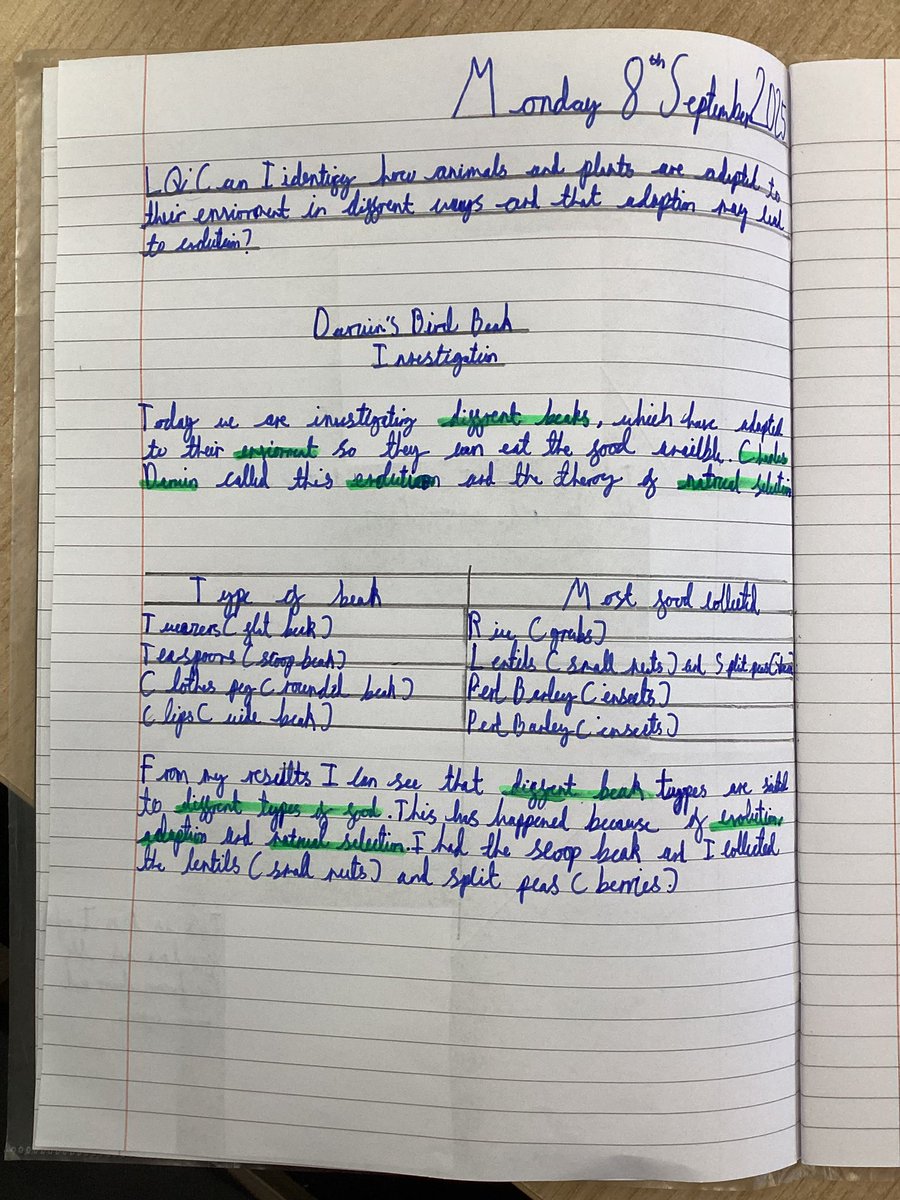 Monday 8th September 2025
LQ: Can I identify how animals and plants are adapted to
their enviorment in diffrent ways and that adaption may lead
to evolution?
Darwin's Bird Beak
Investigation
Today we are investigating diffrent beaks, which have adapted
to their enviorment so they can eat the food availble. Charles
Darwin called this evolution and the theroy of natrual selection
Type of beak Most food collected
Tweazers (flat beak) Rice (grubs)
Teaspoons (scoop beak) Lentils (small nuts) and Split peas
Clothes peg (rounded beak) Perl Barley (insects)
Clips (wide beak) Perl Barley (insects)
From my results I can see that diffrent beak types are
to diffrent types of food. This has happened because of evolution,
adaption and natrual selection. I had the scoop beak and I collected
the lentils (small nuts) and split peas (berries.)